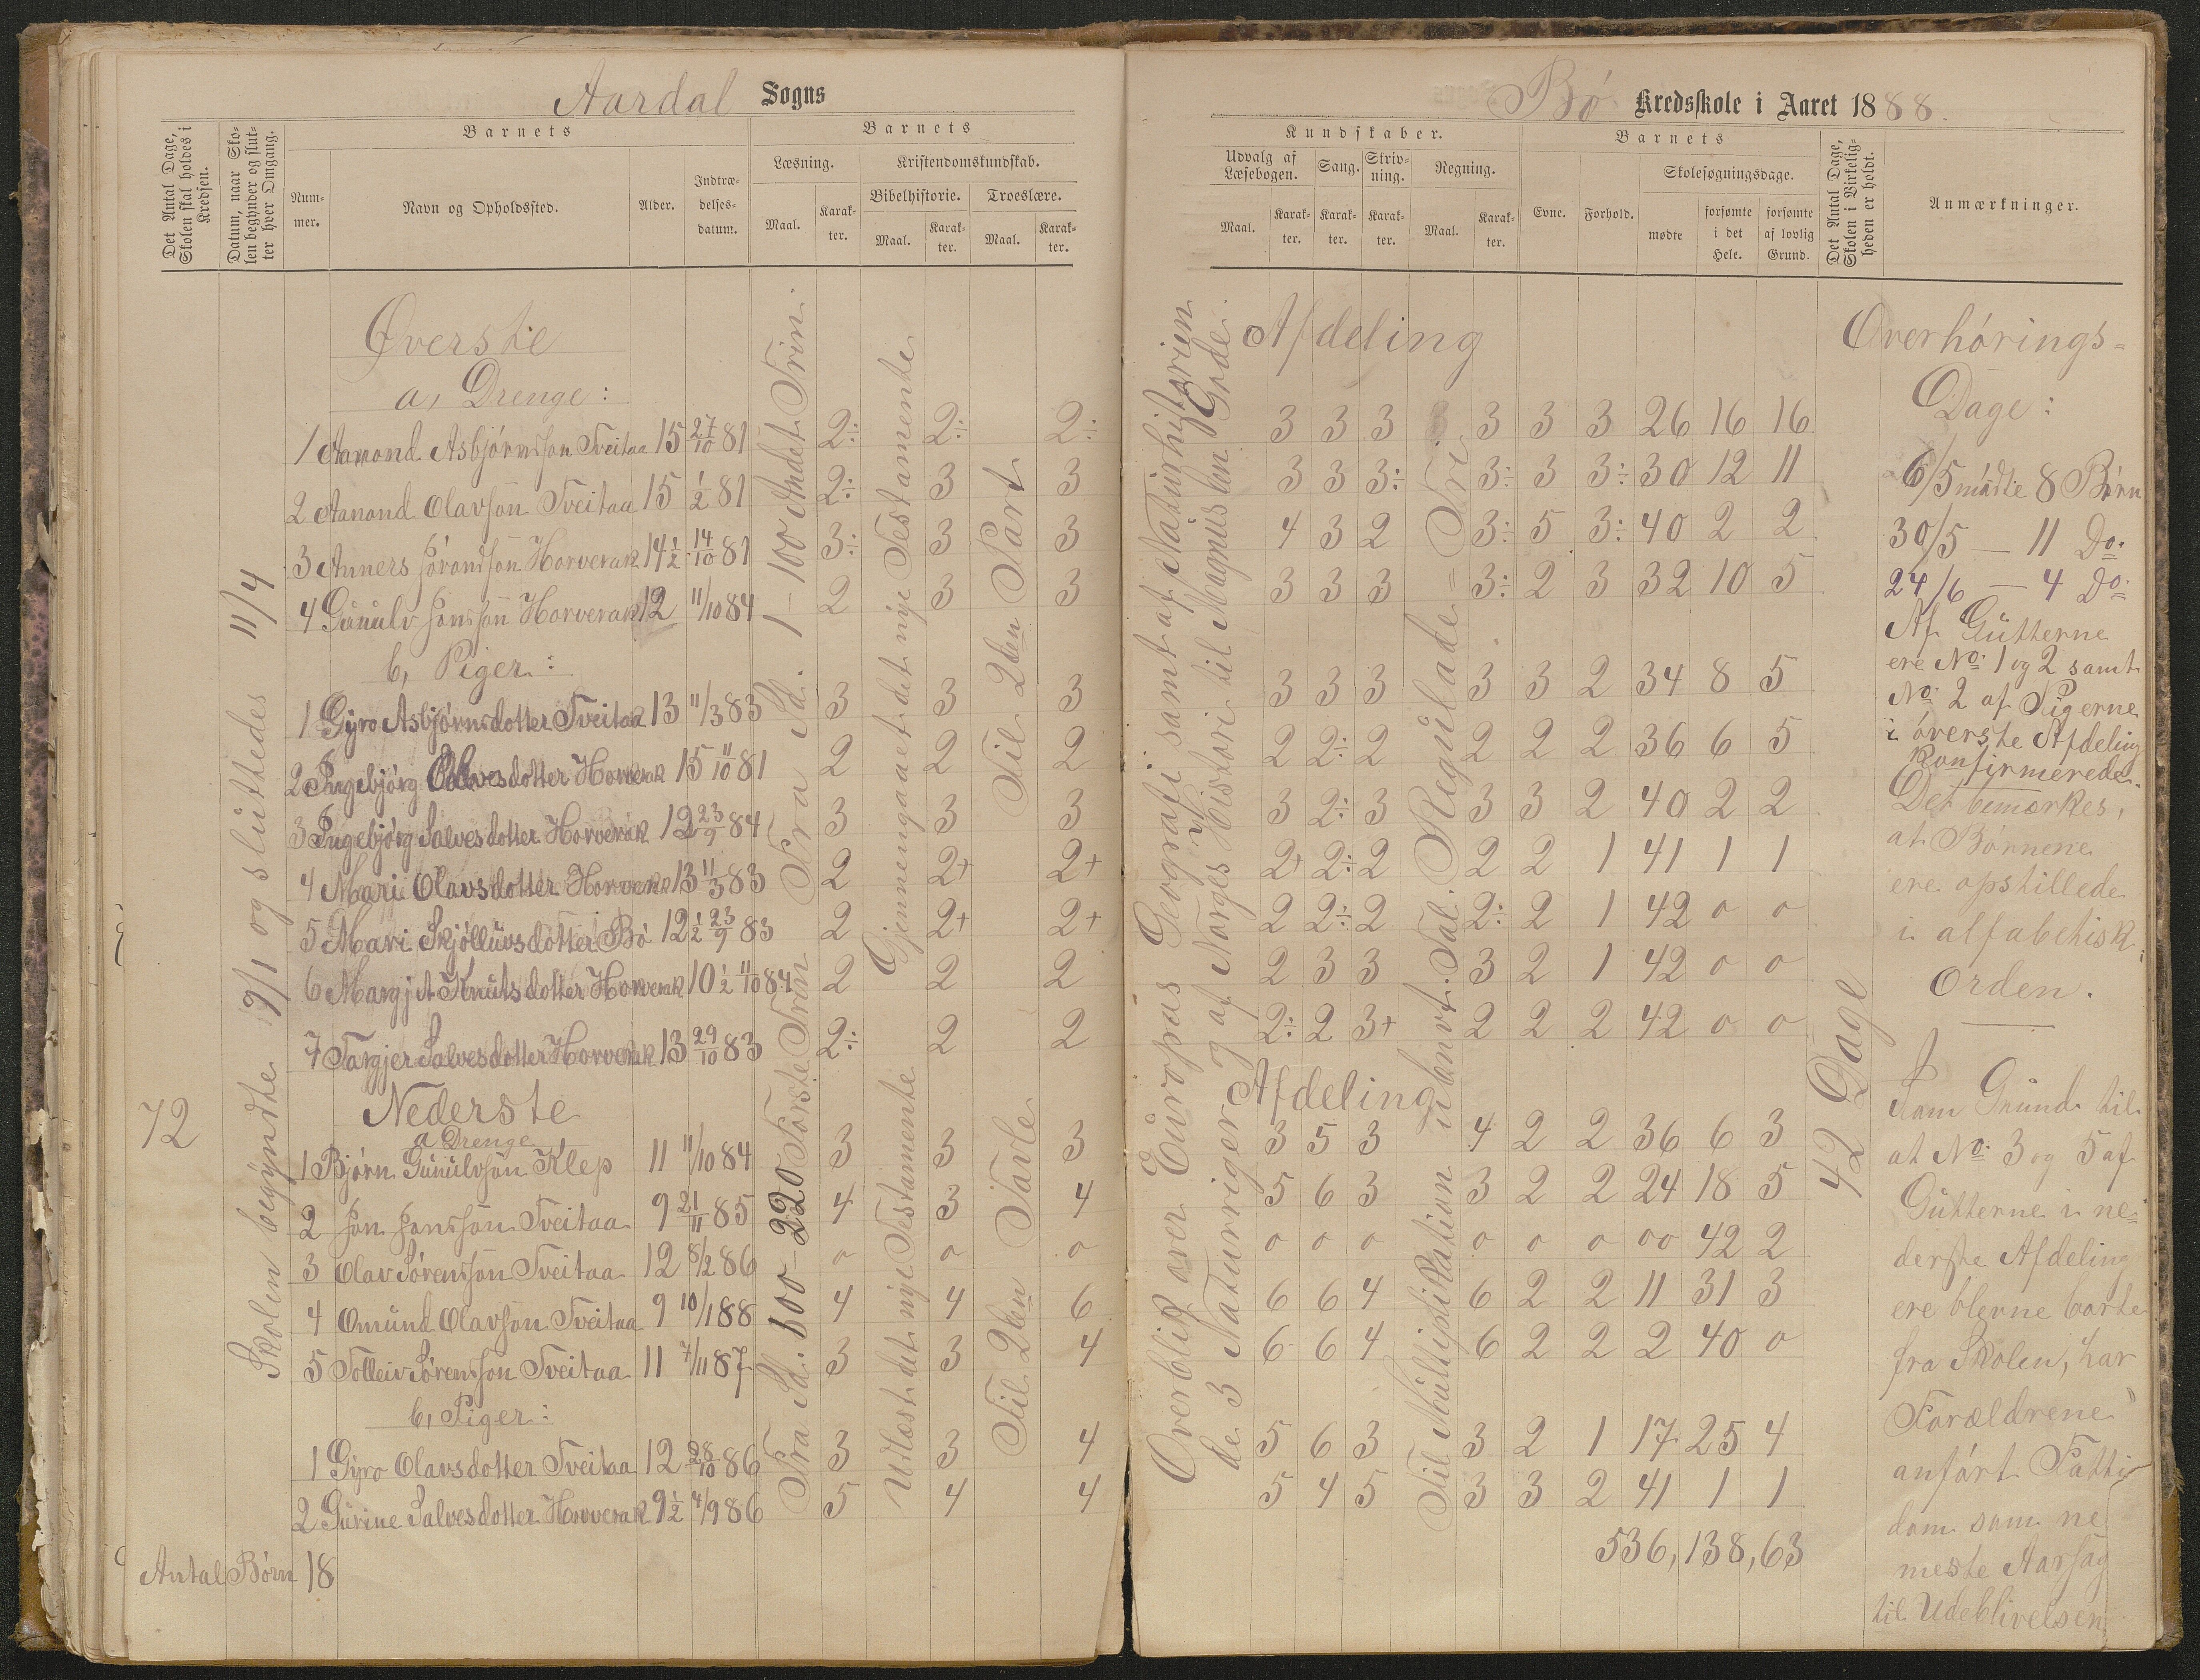 Aardal Sogns
Det Antal Dage, Skolen skal holdes i Kredsen.
Datum, naar Skolen begynder og slutter hver Omgang.
Barnets
Nummer.
Navn og Opholdssted.
Alder.
Indtrædelsesdatum.
Barnets
Læsning.
Kristendomskundskab.
Maal.
Karakter.
Bibelhistorie.
Troeslære.
Maal.
Karakter.
Maal.
Karakter.
72
Skolen begyndte 19/1 og sluttedes 11/4
Fra Sd. 1 – 100 Andet Trin.
Gjennemgaaet det nye Testamente
Til 2den Part
Øverste
a, Drenge:
1 Aamond Asbjørnsson Tveitaa 15 27/10 81 2÷ 2÷ 2÷
2 Aanond Olavson Tveitaa 15 1/2 81 2÷ 3 3
3 Anners Jørondson Horverak 14½ 14/10 81 3÷ 3 3
4 Gunulv Jonsson Horverak 12 11/10 84 2 3 3
b, Piger:
1 Gyro Asbjørnsdotter Tveitaa 13 11/3 83 3 3 3
2 Ingebjørg Olavesdotter Horverak 15 11/10 81 2 2 2
3 Ingebjørg Salvesdotter Horverak 12 23/9 84 3 3 3
4 Mari Olavsdotter Horverak 13 11/3 83 2 2+ 2+
5 Mari Skjølluvsdotter Bø 12½ 23/9 83 2 2+ 2+
6 Margjit Knutsdotter Horverak 10½ 11/10 84 2 2 2
7 Targjer Salvesdotter Horverak 13 29/10 83 2÷ 2 2
Nederste
a Drenge
Fra Sd. 600 – 220 Første Trin
Udlæst det nye Testamente
Til 2den Tavle
1 Bjørn Gunulvson Klep 11 11/10 84 3 3 3
2 Jon Jonsson Tveitaa 9 21/11 85 4 3 4
3 Olav Sørensson Tveitaa 12 8/2 86 o o o
4 Omund Olavson Tveitaa 9 10/1 88 4 4 6
5 Tolleiv Sørensson Tveitaa 11 7/11 87 3 3 4
b, Piger:
1 Gyro Olavsdotter Tveitaa 12 28/10 86 3 3 4
2 Gurine Salvesdotter Horverak 9½ 4/9 86 5 4 4
Antal Børn 18
Bø Kredsskole i Aaret 1888.
Kundskaber.
Udvalg af Læsebogen.
Sang.
Skrivning.
Regning.
Maal.
Karakter.
Karakter.
Karakter.
Maal.
Karakter.
Barnets
Evne.
Forhold.
Skolesøgningsdage.
mødte
forsømte i det Hele.
forsømte af lovlig Grund.
Det Antal Dage, Skolen i Virkeligheden er holdt.
Anmærkninger.
Overblik over Europas Geografi samt af Naturhistorien
de 3 Naturriger og af Norges Historie til Magnus den Gode.
Afdeling
3 3 3 3 3 3 26 16 16
3 3 3÷ 3÷ 3 3÷ 30 12 11
4 3 2 3÷ 5 3÷ 40 2 2
3 3 3 3÷ 2 3 32 10 5
3 3 3 3 3 2 34 8 5
2 2÷ 2 2 2 2 36 6 5
3 2÷ 3 3 3 2 40 2 2
2+ 2÷ 2 2 2 1 41 1 1
2 2÷ 2 2÷ 2 1 42 o o
2 3 3 3 2 1 42 o o
2÷ 2 3+ 2 2 2 42 o o
Afdeling
Til Multiplikation i ubenvt. Tal. Regulade = Tri.
3 5 3 4 2 2 36 6 3
5 6 3 3 2 2 24 18 5
o o o o o o oo 42 2
6 6 4 6 2 2 11 31 3
6 6 4 6 2 2 2 40 o
5 6 3 3 2 1 17 25 4
5 4 5 3 3 2 41 1 1
536, 138, 63
42 Dage
Overhørings=
Dage:
6/5 mødte 8 Børn
30/5 — 11 Do.
24/6 — 4 Do.
Af Gutterne
ere No. 1 og 2 samt
No. 2 af Pigerne
i øverste Afdeling
konfirmerede.
Det bemærkes,
at Børnene
ere opstillede
i alfabetisk
Orden.
Som Grund til
at No. 3 og 5 af
Gutterne i ne=
derste Afdeling
ere blevne borte
fra Skolen, har
Forældrene
anført Fatti=
dom som ne
meste Aarsag
til Udeblivelsen